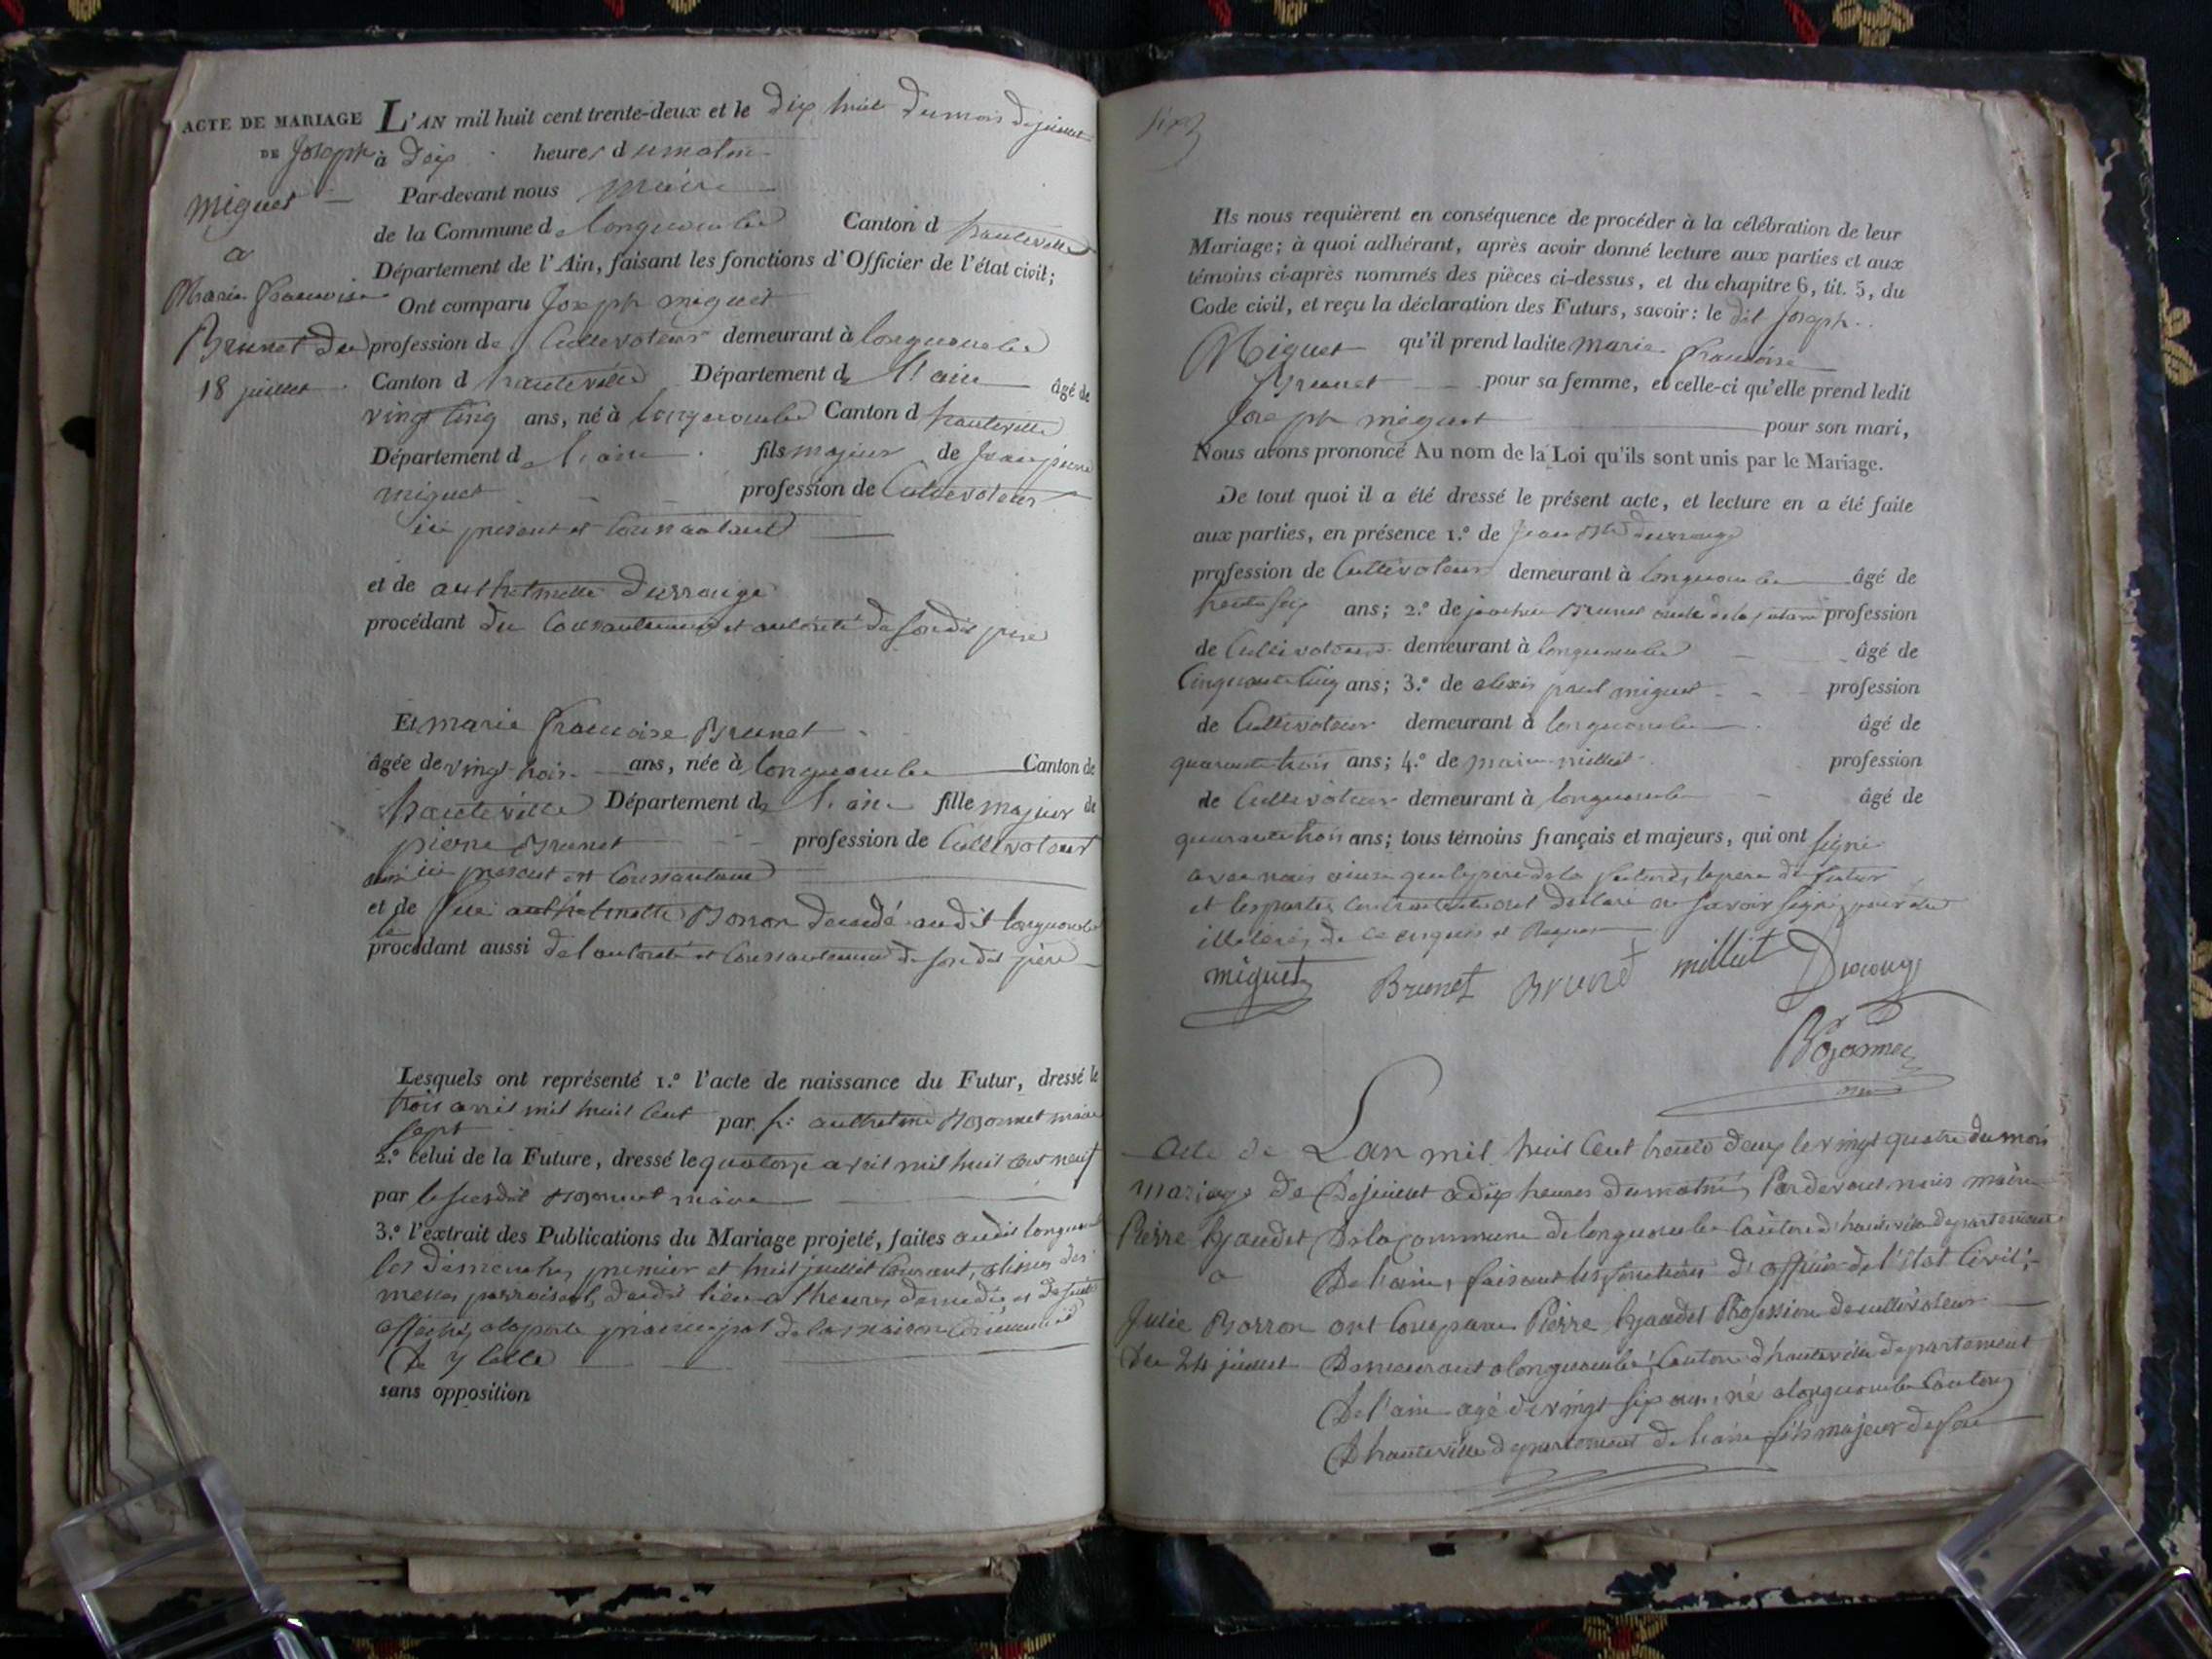 ACTE DE MARIAGE
DE Joseph
miguet
a
Marie francoise
Brunet du
18 juillet
L'AN mil huit cent trente-deux et le dix huit du mois de juillet
à dix heures du matin
Par-devant nous maire
de la Commune de longecombe Canton d hauteville
Département de l'Ain, faisant les fonctions d'Officier de l'état civil;
Ont comparu Joseph miguet
profession de Cultivateur demeurant à longecombe
Canton d hauteville Département de l'ain âgé de
vingt cinq ans, né à longecombe Canton d hauteville
Département de l'ain fils majeur de Jean pierre
miguet profession de Cultivateur
ici present et Consentant
et de anthelmette Durrouge
procédant du Consentement et autorité de son dit père
Et marie francoise Brunet
âgée de vingt trois ans, née à longecombe Canton de
hauteville Département de l'ain fille majeur de
pierre Brunet profession de Cultivateur
aussi ici present et Consentant
et de feue anthelmette Borron décédé audit longecombe
procédant aussi de l'autorité et Consentement de son dit père
Lesquels ont représenté 1.º l'acte de naissance du Futur, dressé le
trois avril mil huit Cent
sept par anthelme maire
2.º celui de la Future, dressé le quatorze avril mil huit Cent neuf
par le susdit maire
3.º l'extrait des Publications du Mariage projeté, faites audit longecombe
les dimanches premier et huit juillet Courant, a l'issue des
messes parroissial, dudit lieu a l'heure de midi, et de suite
affichés a la porte principal de la maison Commune
sans opposition
Ils nous requièrent en conséquence de procéder à la célébration de leur
Mariage; à quoi adhérant, après avoir donné lecture aux parties et aux
témoins ci-après nommés des pièces ci-dessus, et du chapitre 6, tit. 5, du
Code civil, et reçu la déclaration des Futurs, savoir: le dit Joseph
Miguet qu'il prend ladite marie francoise
Brunet pour sa femme, et celle-ci qu'elle prend ledit
Joseph miguet pour son mari,
Nous avons prononcé Au nom de la Loi qu'ils sont unis par le Mariage.
De tout quoi il a été dressé le présent acte, et lecture en a été faite
aux parties, en présence 1.º de Jean Bte Durrouge
profession de Cultivateur demeurant à longecombe âgé de
trente six ans; 2.º de joachim Brunet oncle de la future profession
de Cultivateur demeurant à longecombe âgé de
Cinquante Cinq ans; 3.º de alexis paul miguet profession
de Cultivateur demeurant à longecombe âgé de
quarante trois ans; 4.º de millet profession
de Cultivateur demeurant à longecombe âgé de
quarante trois ans; tous témoins français et majeurs, qui ont signé
avec nous ainsi que le père de la future, le père du futur
et les parties Contractantes ont déclaré ne savoir signer pour être
illiterés de ce enquis et Requis
miguet Brunet Brunet milliet
Acte de
mariage de
Pierre
a
Julie Borron
du 24 juillet
L'an mil huit Cent trente deux le vingt quatre du mois
de juillet a dix heures du matin, Par devant nous maire
de la Commune de longecombe Canton d'hauteville departement
de l'ain, faisant les fonctions d'officier de l'état Civil;
ont Comparu Pierre Profession de cultivateur
demeurant a longecombe Canton d'hauteville departement
de l'ain agé de vingt six ans, né a longecombe Canton
d'hauteville departement de l'ain fils majeur de feu